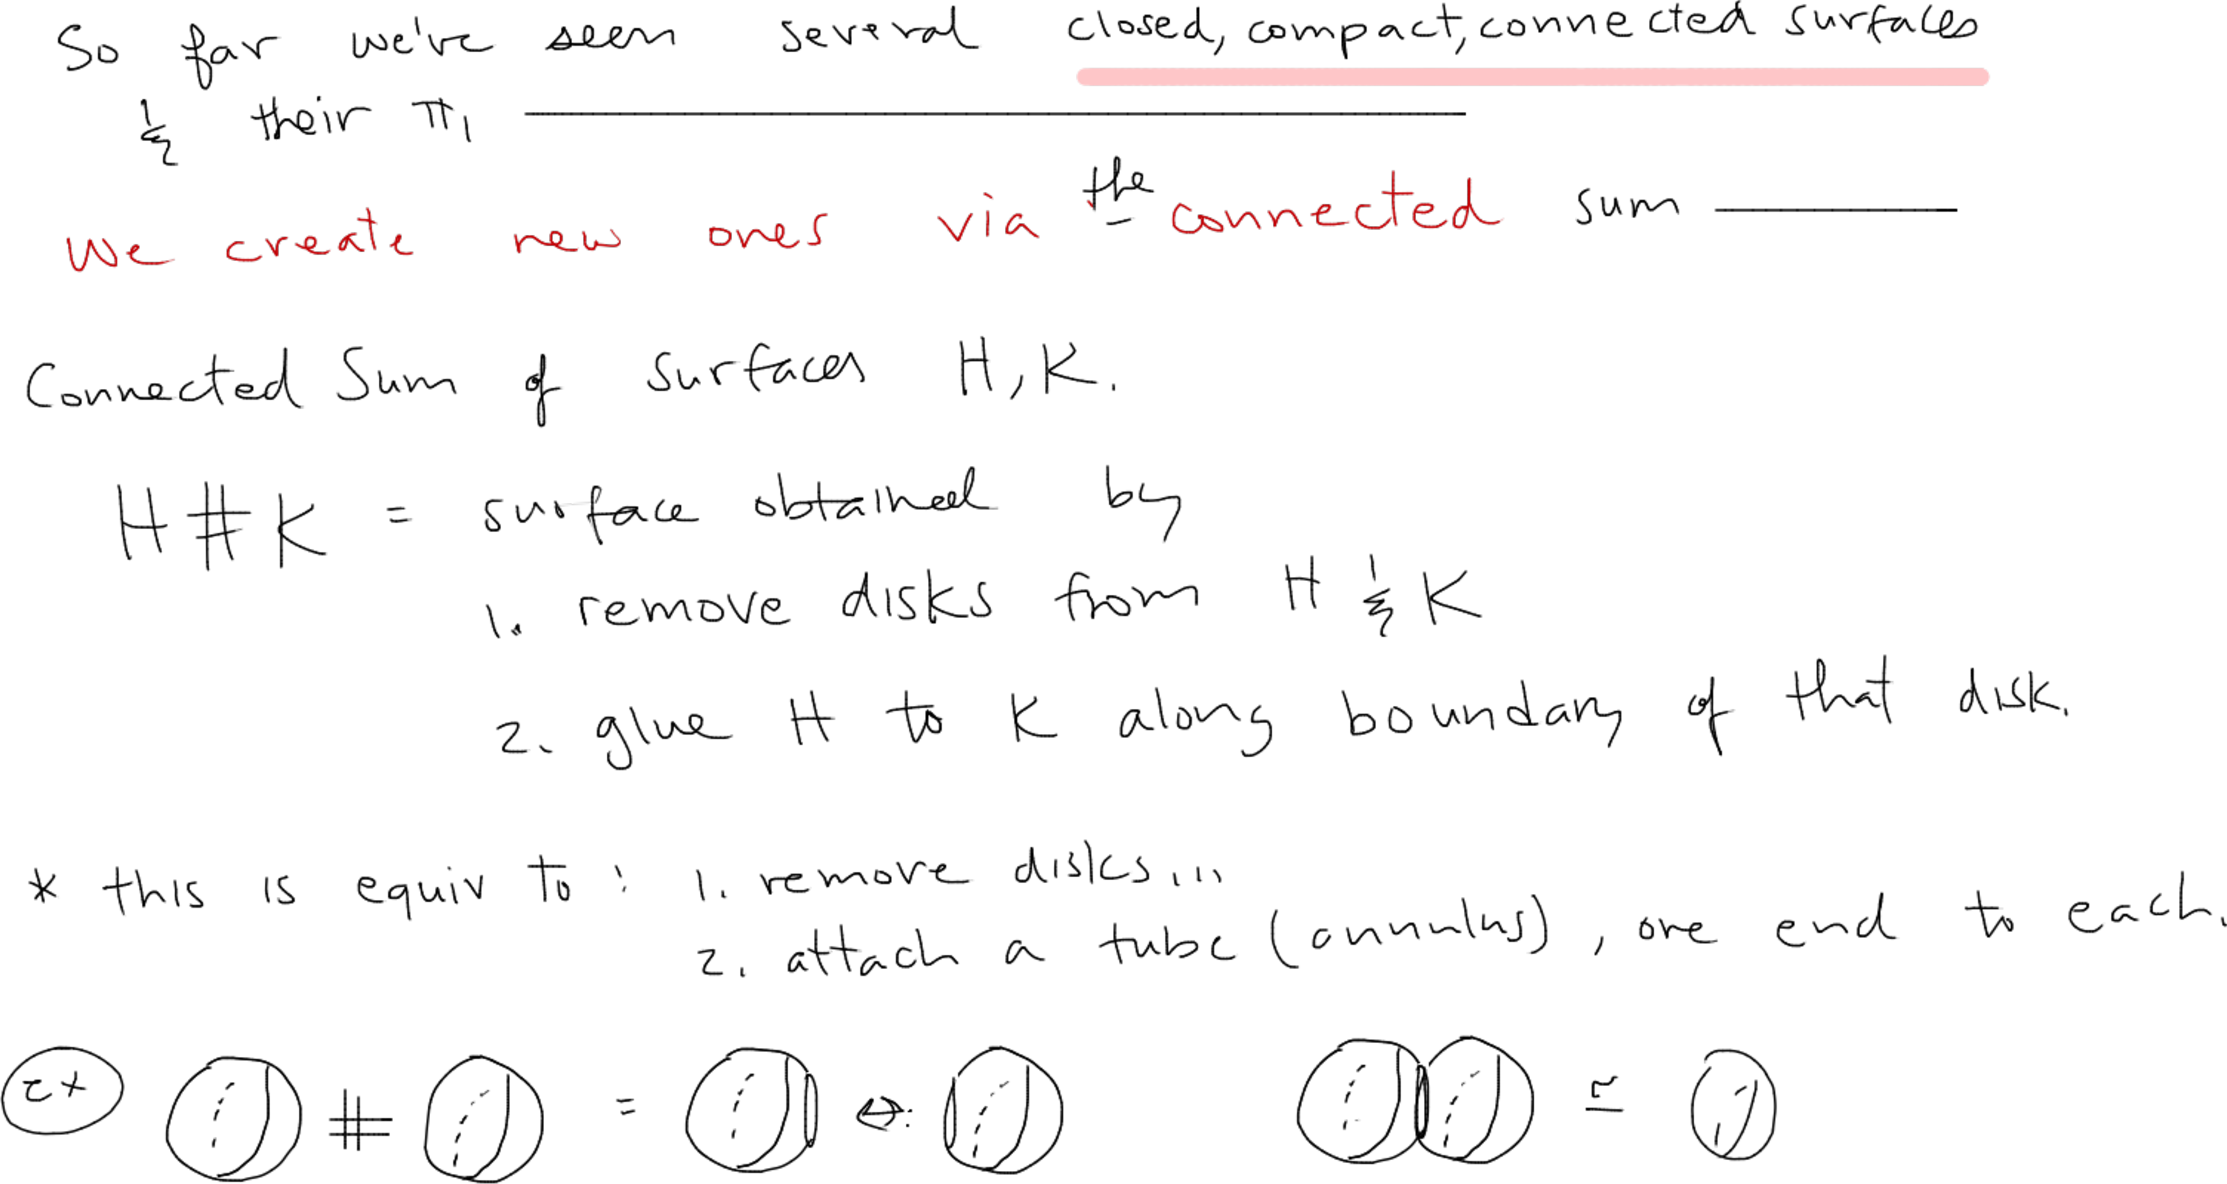 So far we've seen several closed, compact, connected surfaces
& their π₁
We create new ones via the connected sum
Connected Sum of surfaces H, K.
H # K = surface obtained by
1. remove disks from H & K
2. glue H to K along boundary of that disk.
* this is equiv to : 1. remove disks...
2. attach a tube (annulus), one end to each.
ex # = ↔ : ≅